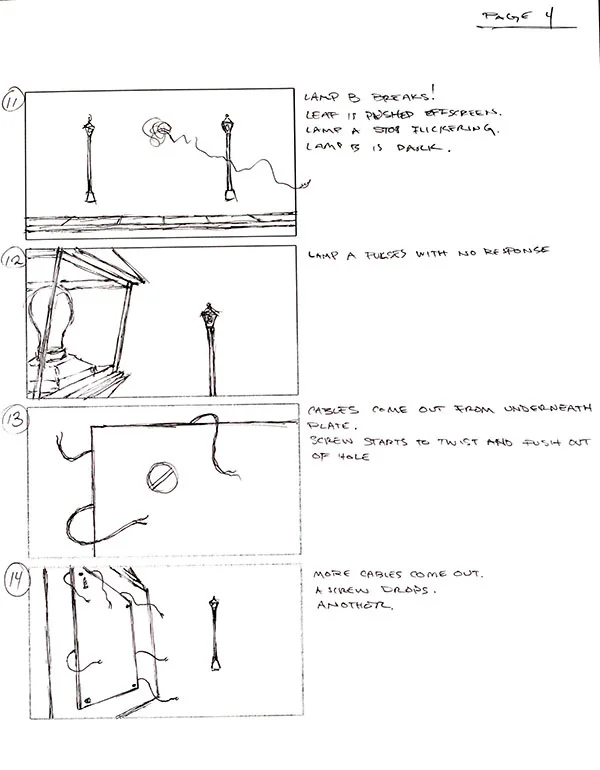 PAGE 4
11
LAMP B BREAKS!
LEAF IS PUSHED OFFSCREEN.
LAMP A STOP FLICKERING.
LAMP B IS DARK.
12
LAMP A PULSES WITH NO RESPONSE
13
CABLES COME OUT FROM UNDERNEATH
PLATE.
SCREW STARTS TO TWIST AND PUSH OUT
OF HOLE
14
MORE CABLES COME OUT.
A SCREW DROPS.
ANOTHER.